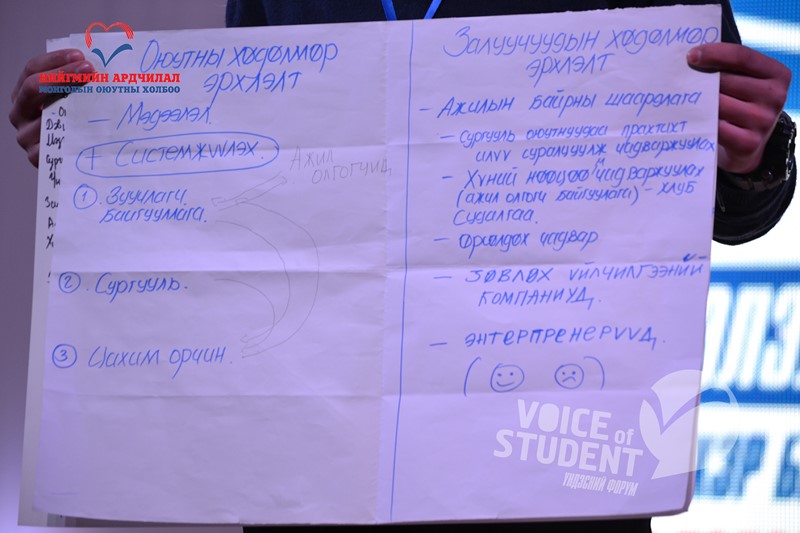 НИЙГМИЙН АРДЧИЛАЛ
МОНГОЛЫН ОЮУТНЫ ХОЛБОО
Оюутны хөдөлмөр
эрхлэлт
— Мэдээлэл.
+ Системжүүлэх.
Ажил
олгогчид
1 Зуучлагч
байгууллага.
2 Сургууль.
3 Цахим орчин.
Залуучуудын хөдөлмөр
эрхлэлт
— Ажлын байрны шаардлага
— Сургууль оюутнуудаа практикт
илүү суралцуулж чадваржуулах
— Хүний нөөцөө чадваржуулах
(ажил олгогч байгууллага) – клуб
Судалгаа.
— Өрсөлдөх чадвар
— ЗӨВЛӨХ ҮЙЛЧИЛГЭЭНИЙ
КОМПАНИУД,
— ЭНТЕРПРЕНЕРҮҮД,
VOICE of
STUDENT
ҮНДЭСНИЙ ФОРУМ